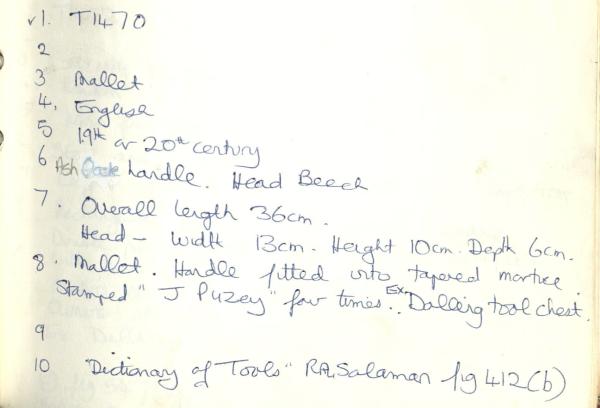 ✓1. T1470
2
3 Mallet
4. English
5 19th or 20th century
6 Ash Oak handle. Head Beech
7. Overall length 36cm.
Head - Width 13cm. Height 10cm. Depth 6cm.
8. Mallet. Handle fitted into tapered mortice.
Stamped "J Puzey" four times. Ex. Dalling tool chest.
9
10 "Dictionary of Tools" R.A. Salaman fig 412(b)